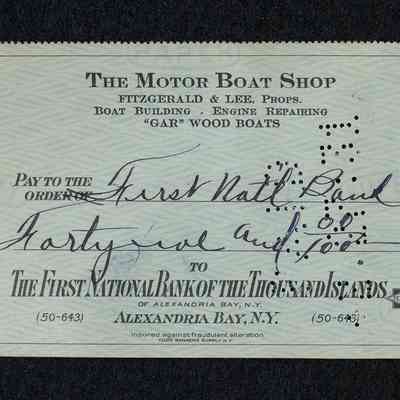 THE MOTOR BOAT SHOP
FITZGERALD & LEE, PROPS.
BOAT BUILDING . ENGINE REPAIRING
"GAR" WOOD BOATS
PAY TO THE
ORDER OF First Nat'l Band
Forty five and 00/100
TO
THE FIRST NATIONAL BANK OF THE THOUSAND ISLANDS
OF ALEXANDRIA BAY, N.Y.
(50-643) ALEXANDRIA BAY, N.Y. (50-643)
Insured against fraudulent alteration